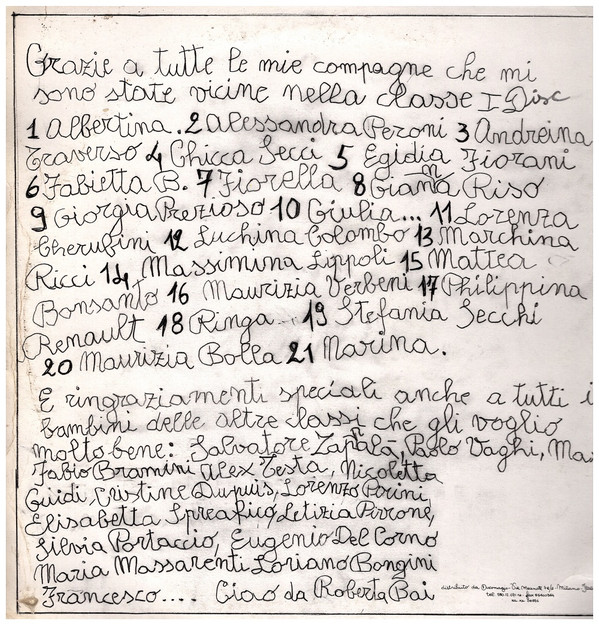 Grazie a tutte le mie compagne che mi
sono state vicine nella classe I Disc
1 Albertina. 2 Alessandra Peroni 3 Andreina
Traverso 4 Chicca Secci 5 Egidia Fiorani
6 Fabietta B. 7 Fiorella 8 Gianna Riso
9 Giorgia Prezioso 10 Giulia... 11 Lorenza
Cherubini 12 Luchina Colombo 13 Marchina
Ricci 14 Massimina Lippoli 15 Mattea
Bonsanto 16 Maurizia Verbeni 17 Philippina
Renault 18 Ringa... 19 Stefania Secchi
20 Maurizia Bolla 21 Marina.
E ringraziamenti speciali anche a tutti i
bambini delle altre classi che gli voglio
molto bene: Salvatore Zappalà, Paolo Vaghi, Ma
Fabio Bramini Alex Testa, Nicoletta
Guidi, Cristine Dupuis, Lorenzo Porini
Elisabetta Spreafico, Letizia Pirrone,
Silvia Portaccio, Eugenio Del Corno
Maria Massarenti Loriano Bongini
Francesco.... Ciao da Roberta Bai
distribuito da